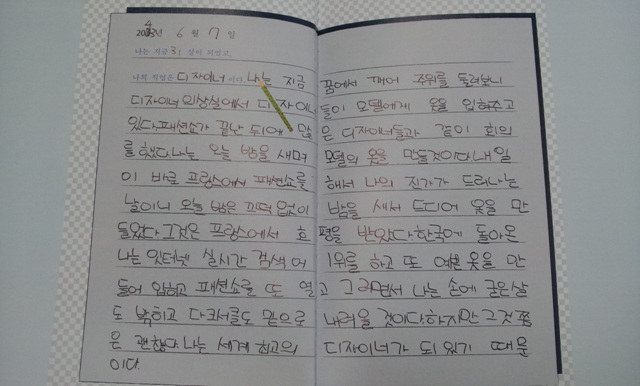 년 6월 7일
나는 지금 31 살이 되었고,
나의 직업은 디자이너 이다 나는 지금 꿈에서 깨어 주위를 둘러보니
디자이너 의상실에서 디자이너들이 모델에게 옷을 입혀주고
있다.패션쇼가 끝난 뒤에 많은 디자이너들과 같이 회의
를 했다.나는 오늘 밤을 새며 모델의 옷을 만들것이다.내일
이 바로 프랑스에서 패션쇼를 해서 나의 진가가 드러나는
날이니 오늘 밤은 끄떡 없이 밤을 새서 드디어 옷을 만
들었다 그것은 프랑스에서 호평을 받았다.한국에 돌아온
나는 인터넷 실시간 검색 어 1위를 하고 또 예쁜 옷을 만
들어 입히고 패션쇼를 또 열고 그러면서 나는 손에 굳은살
도 박히고 다크써클도 밑으로 내려올 것이다.하지만 그것 쯤
은 괜찮다.나는 세계 최고의 디자이너가 되어 있기 때문
이다.